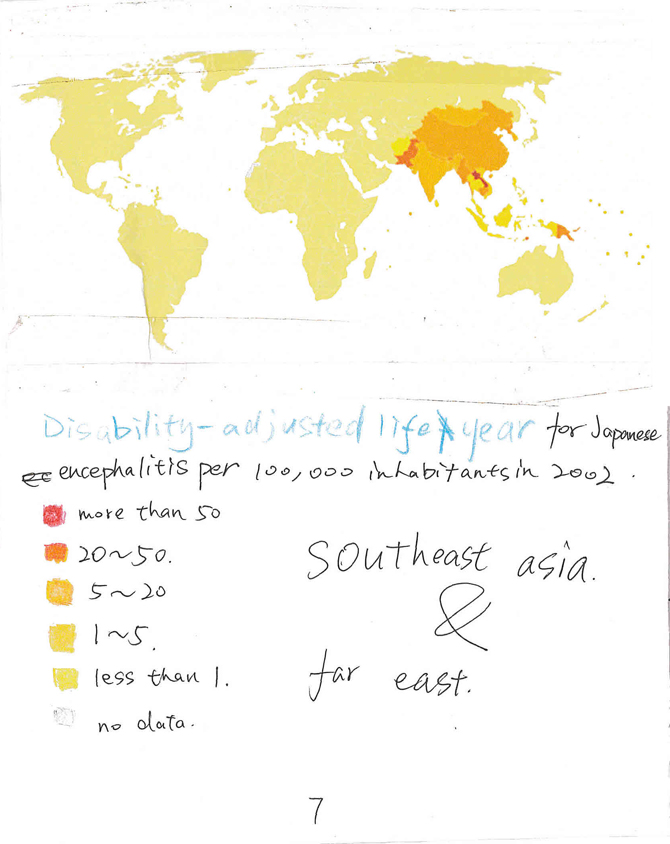 Disability-adjusted life year for Japanese
encephalitis per 100,000 inhabitants in 2002.
more than 50
20~50.
5~20
1~5.
less than 1.
no data.
southeast asia.
&
far east.
7